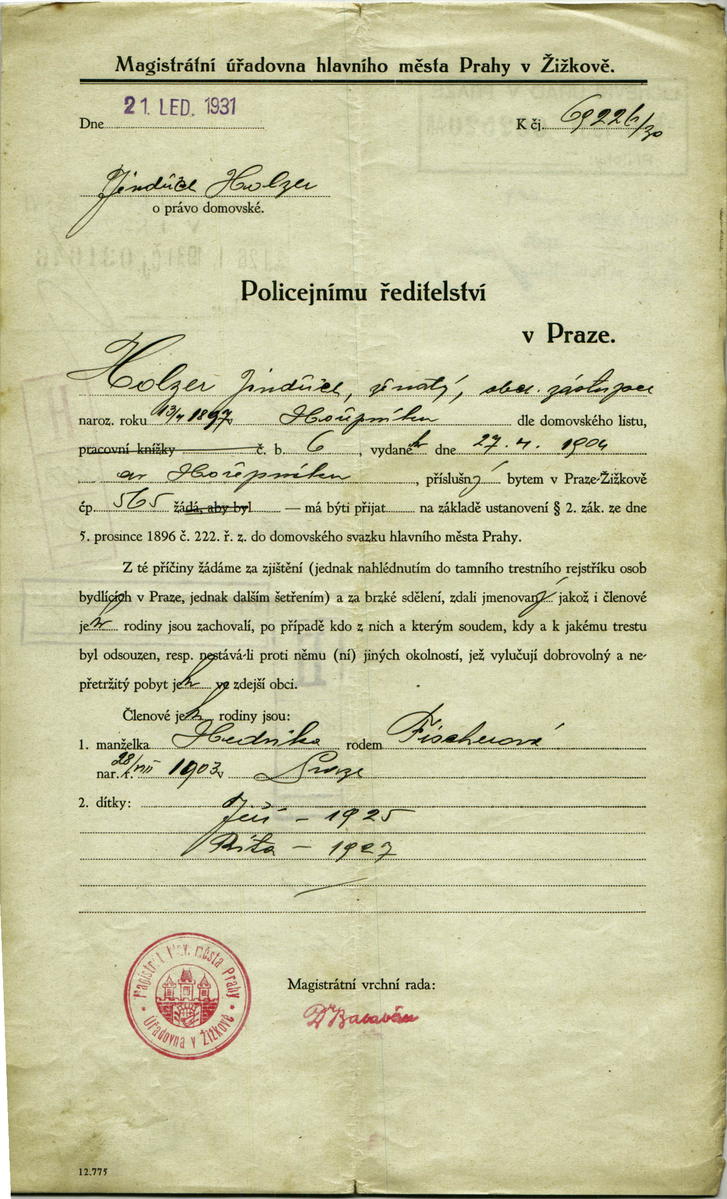 Magistrátní úřadovna hlavního města Prahy v Žižkově.
Dne 21. LED. 1931
K čj. 69226/30
Jindřich Holzer
o právo domovské.
Policejnímu ředitelství
v Praze.
Holzer Jindřich, ženatý, obch. zástupce
naroz. roku 13/4 1897 v Hořepníku dle domovského listu,
pracovní knížky č. b. 6, vydaného dne 27. 4. 1904
v Hořepníku, příslušný bytem v Praze-Žižkově
čp. 565 žádá, aby byl — má býti přijat na základě ustanovení § 2. zák. ze dne
5. prosince 1896 č. 222. ř. z. do domovského svazku hlavního města Prahy.
Z té příčiny žádáme za zjištění (jednak nahlédnutím do tamního trestního rejstříku osob
bydlících v Praze, jednak dalším šetřením) a za brzké sdělení, zdali jmenovaný jakož i členové
jeh rodiny jsou zachovalí, po případě kdo z nich a kterým soudem, kdy a k jakému trestu
byl odsouzen, resp. nestává-li proti němu (ní) jiných okolností, jež vylučují dobrovolný a ne-
přetržitý pobyt jeh ve zdejší obci.
Členové jeh rodiny jsou:
1. manželka Hedvika rodem Fischerová
nar. r. 28/VII 1903 v Praze
2. dítky: Jiří – 1925
Rita – 1927
Magistrát hlav. města Prahy
Úřadovna v Žižkově
Magistrátní vrchní rada:
12.775